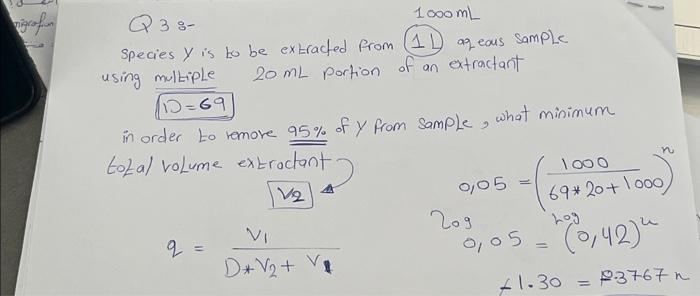 1000mL
Q 3 8-
species y is to be extracted from 1L aqeous sample
using multiple 20 mL portion of an extractant
D=69
in order to remove 95% of y from sample, what minimum
total volume extractant
V2
q = V1 / D*V2 + V1
0,05 = (1000 / 69*20+1000)^n
log log
0,05 = (0,42)^n
-1.30 = 3767 n